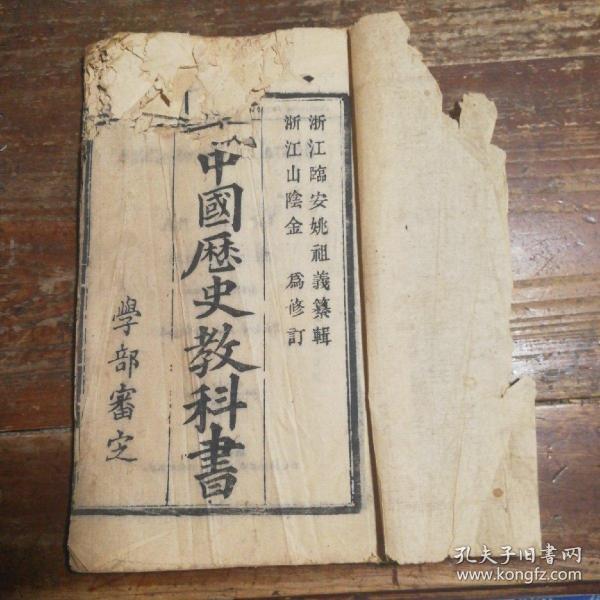 浙江臨安姚祖義纂輯
浙江山陰金 爲修訂
中國歷史教科書
學部審定
孔夫子旧書网
www.kongfz.com